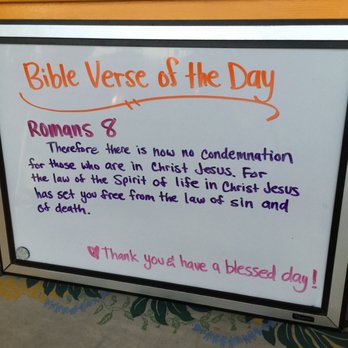 Bible Verse of the Day
Romans 8
Therefore there is now no condemnation
for those who are in Christ Jesus. For
the law of the Spirit of life in Christ Jesus
has set you free from the law of sin and
of death.
Thank you & have a blessed day!